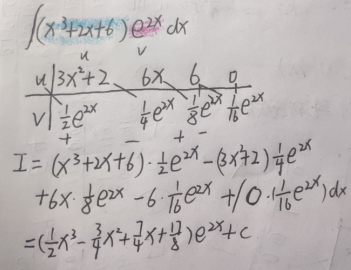 ∫(x³+2x+6)e^{2x}dx
u v
u | 3x²+2 6x 6 0
v | ½e^{2x} ¼e^{2x} ⅛e^{2x} 1/16 e^{2x}
+ − + −
I = (x³+2x+6)·½e^{2x} − (3x²+2)¼e^{2x}
+6x·⅛e^{2x} − 6·1/16 e^{2x} + ∫0·(1/16 e^{2x})dx
= (½x³ − ¾x² + 7/4 x + 17/8)e^{2x} + c